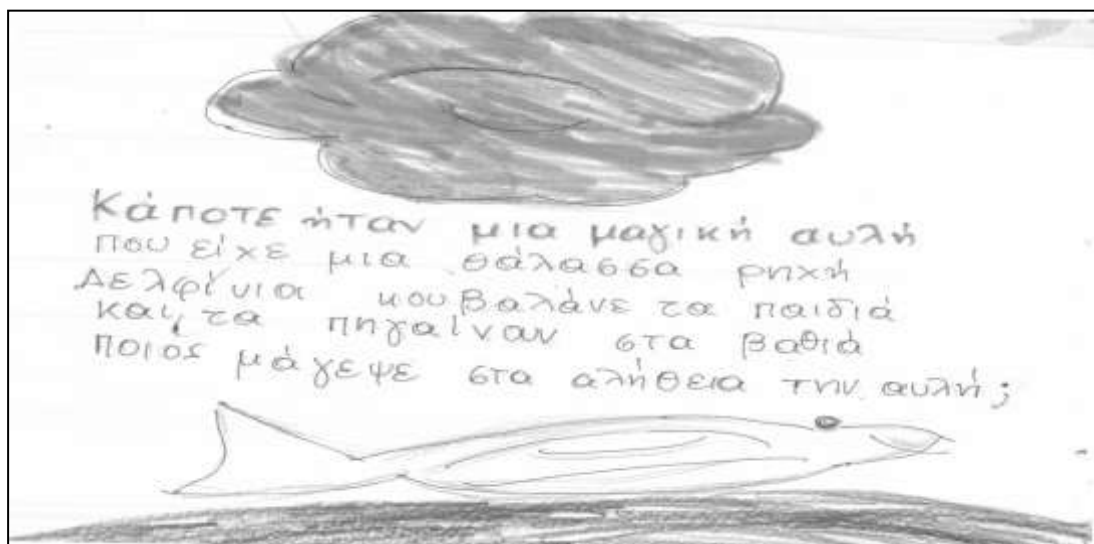 Κάποτε ήταν μια μαγική αυλή
που είχε μια θάλασσα ρηχή
Δελφίνια κουβαλάνε τα παιδιά
και τα πηγαίναν στα βαθιά
ποιός μάγεψε στα αλήθεια την αυλή;